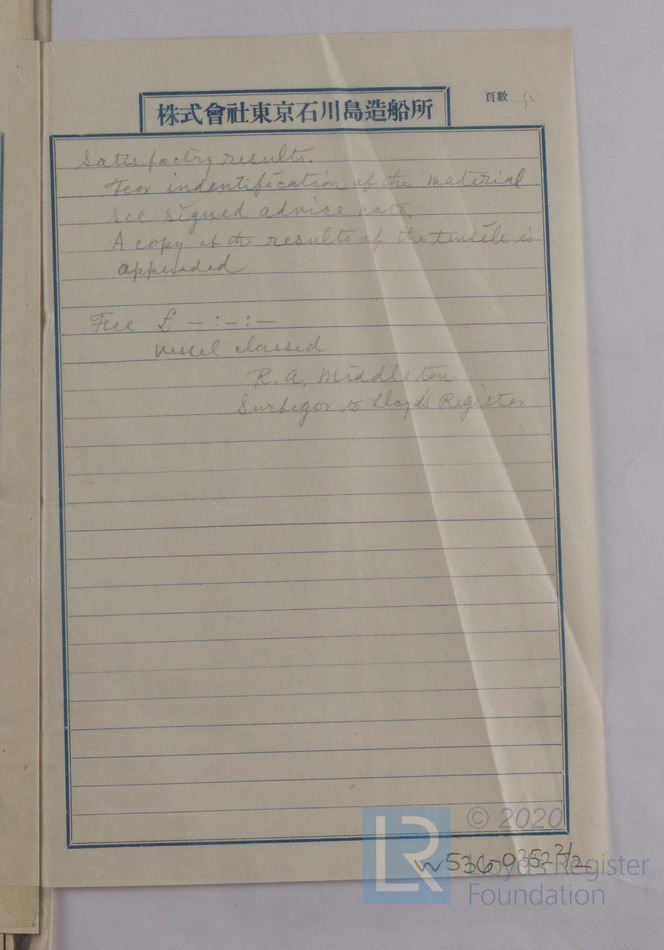 株式會社東京石川島造船所
頁數
Satisfactry results.
For indentification of the material
see signed advice note.
A copy of the results of the tensile is
appended
Fee £ – : – : –
vessel classed
R. A. Middleton
Surveyor to Lloyd's Register
© 2020
LR
Lloyd's Register
Foundation
W536-0352 2/2